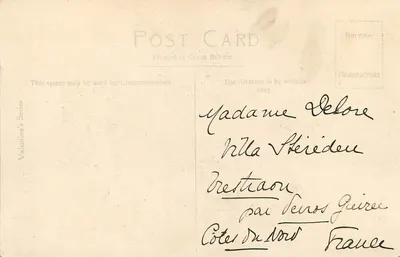 POST CARD
This space may be used for communication
The address to be written here
Valentine's Series
Madame Delore
Villa Stéréden
Trestraou
par Perros Guirec
Côtes du Nord France